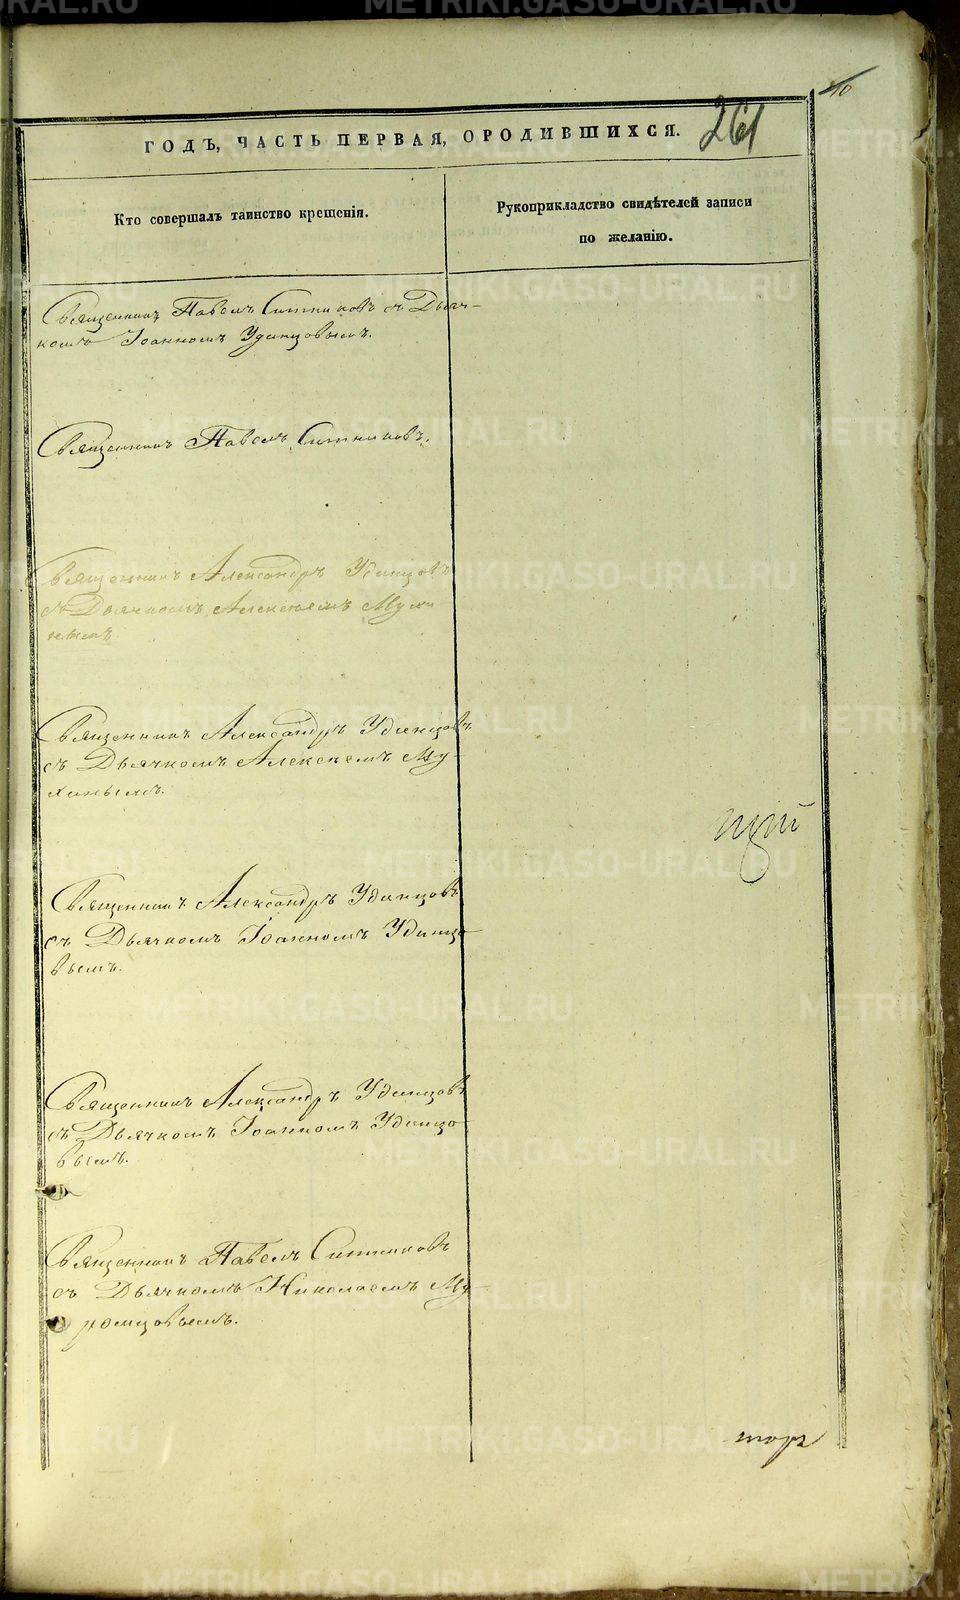 10
261
ГОДЪ, ЧАСТЬ ПЕРВАЯ, О РОДИВШИХСЯ.
Кто совершалъ таинство крещенія.
Рукоприкладство свидѣтелей записи
по желанію.
Священникъ Павелъ Ситниковъ съ Дьяч-
комъ Іоанномъ Удинцовымъ.
Священникъ Павелъ Ситниковъ.
Священникъ Александръ Удинцовъ
съ Дьячкомъ Алексѣемъ Мухи
нымъ
Священникъ Александръ Удинцовъ
съ Дьячкомъ Алексѣемъ Му-
хинымъ.
Священникъ Александръ Удинцовъ
съ Дьячкомъ Іоанномъ Удинцо-
вымъ.
Священникъ Александръ Удинцовъ
съ Дьячкомъ Іоанномъ Удинцо-
вымъ.
Священникъ Павелъ Ситниковъ
съ Дьячкомъ Николаемъ Му-
ромцовымъ.
METRIKI.GASO-URAL.RU